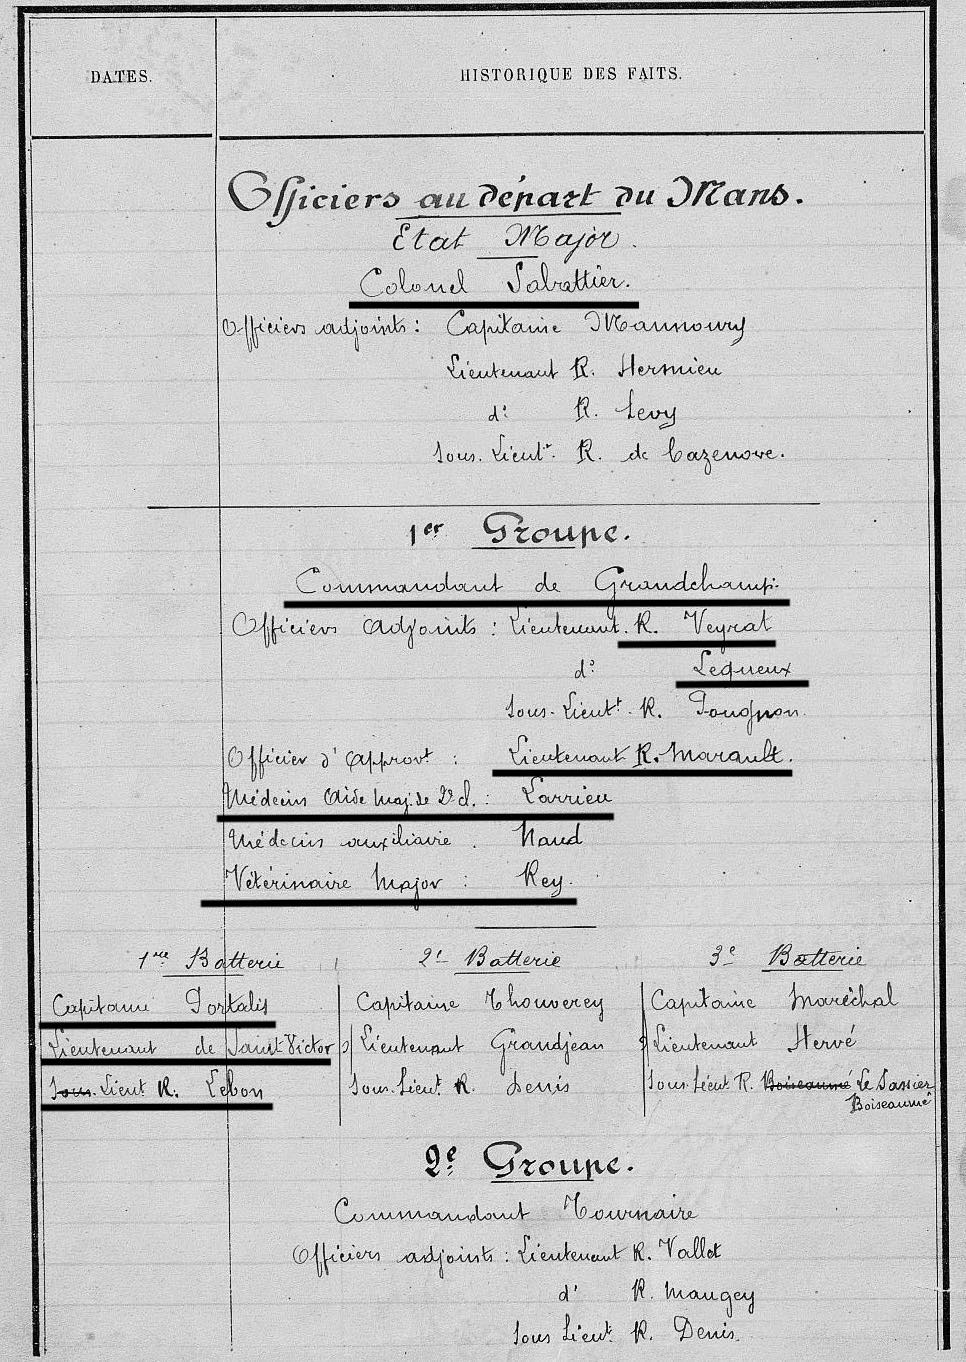 DATES.
HISTORIQUE DES FAITS.
Officiers au départ du Mans.
Etat Major.
Colonel Sabattier.
Officiers adjoints : Capitaine Mannoury
Lieutenant R. Hermieu
d° R. Levy
Sous. Lieut^t. R. de Cazenove.
1er Groupe.
Commandant de Grandchamp.
Officiers adjoints : Lieutenant. R. Veyrat
d° Lequeux
Sous-Lieut^t. R. Pougnon.
Officier d'approv^t : Lieutenant R. Marault.
Médecin aide maj. de 2e cl. : Larrieu
Médecin auxiliaire. Naud
Vétérinaire Major : Rey.
1re Batterie
2e Batterie
3e Batterie
Capitaine Portalis
Capitaine Thouverey
Capitaine Maréchal
Lieutenant de Saint Victor
Lieutenant Grandjean
Lieutenant Hervé
Sous. Lieut. R. Lebon
Sous. Lieut. R. Denis
Sous. Lieut. R. Boiseaumé Le
Boiseaumé
2e Groupe.
Commandant Tournaire
Officiers adjoints : Lieutenant R. Vallet
d° R. Maugey
Sous Lieut. R. Denis.